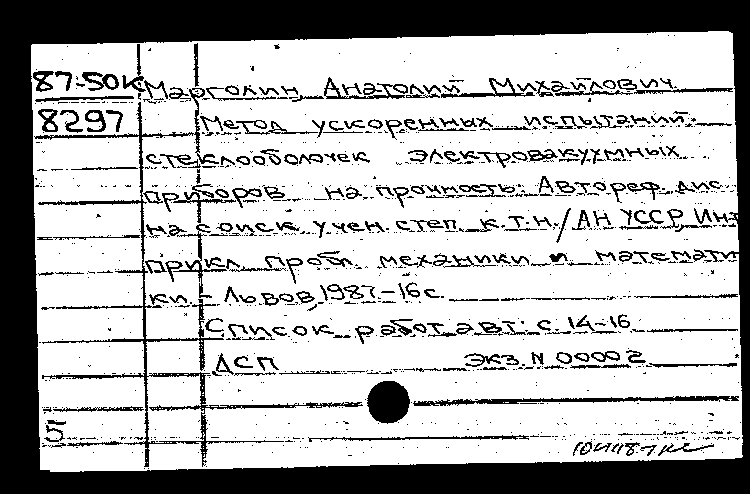 87-50К Марголин, Анатолий Михайлович
8297 Метод ускоренных испытаний
стеклооболочек электровакуумных
приборов на прочность: Автореф. дис.
на соиск. учен. степ. к.т.н./АН УССР, Инт
прикл. пробл. механики и математи
ки. - Львов, 1987-16с.
Список работ авт: с. 14-16
ДСП экз N 00002
5